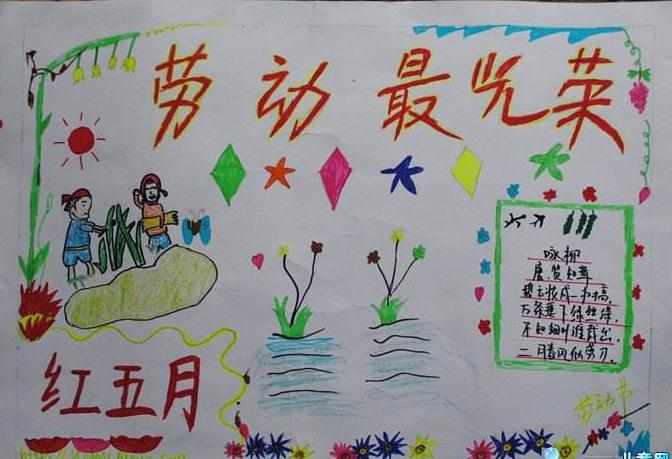 劳动最光荣
咏柳
唐.贺知章
碧玉妆成一树高,
万条垂下绿丝绦,
不知细叶谁裁出,
二月春风似剪刀.
红五月
劳动节
儿童网